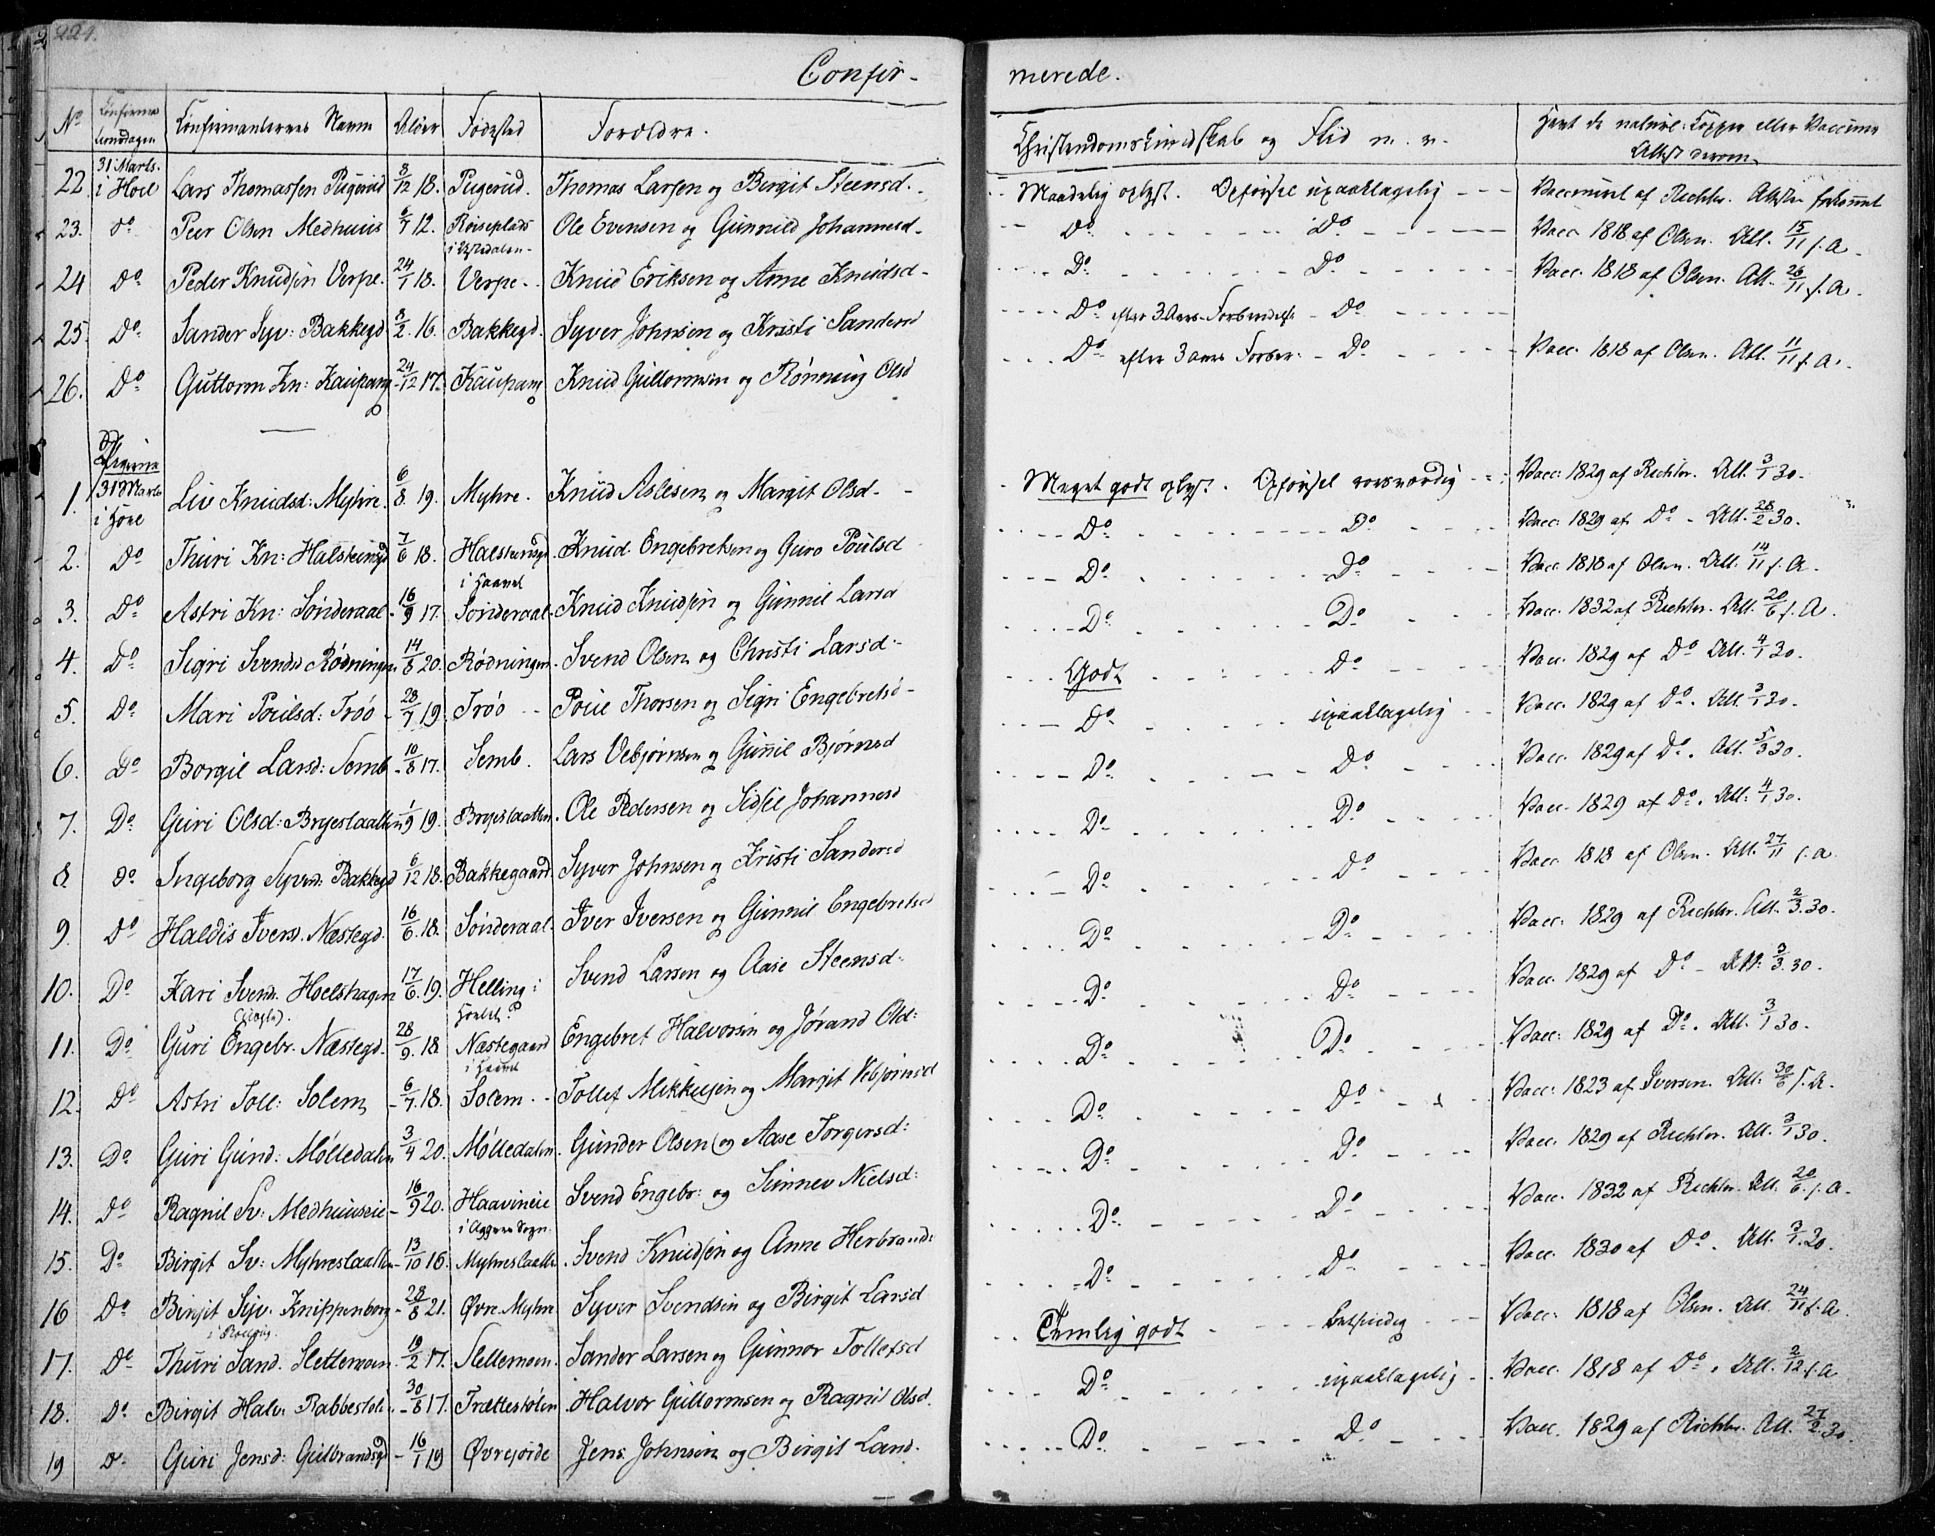 221.
Confir- merede.
No Confirma tionsdagen Confirmanternes Navn Alder Fødested Forældre. Christendomskundskab og Flid m. v. Havt de naturl: Kopper eller Vaccine Attest derom
22 31 Marts. i Hoel Lars Thomassen Pugerud 3/12 18. Pugerud. Thomas Larsen og Birgit Steensd. Maadelig oplyst. Opførsel upaaklagelig Vaccineret af Richter. Attesten forkommet
23. do Peer Olsen Medhuus 6/7 12. Roiseplads Ole Evensen og Gunnild Johannesd. Do Do Vacc 1818 af Olsen. Att. 15/11 f. A.
24 Do Peder Knudsen Verpe. 24/1 18. Verpe. Knud Eriksen og Anne Knudsd. Do Do Vacc. 1818 af Olsen. Att. 26/11 f. A.
25. Do Sander Syv: Bakkegd 8/2 16. Bakkegd. Syver Johnsen og Kristi Sandersd Do efter 3 Aars Forberedelse Do
26. Do Guttorm Kn: Kaupang 24/12 17. Kaupang Knud Guttormsen og Rønnaug Olsd Do efter 3 aars Forber: Do Vacc. 1818 af Olsen. Att. 11/11 f. A.
Pigerne
1. 31 Marts i Hoel Liv Knudsd: Myhre. 6/8 19. Myhre. Knud Aslesen og Margit Olsd. Meget godt oplyst. Opførsel roesværdig Vacc: 1829 af Richter. Att. 3/1 30.
2. Do Thuri Kn: Halsteinsgd 7/6 18. Halsteinsgd i Haavet Knud Engebretsen og Guro Poulsd Do Do Vacc: 1829 af Do. Att. 28/2 30.
3. Do Astri Kn: Sønderaal 16/9 17. Sønderaal. Knud Knudsen og Gunnil Larsd Do Do Vacc. 1818 af Olsen. Att. 14/11 f. A.
4. Do Sigri Svendsd Rødningen 14/8 20. Rødningen. Svend Olsen og Christi Larsd. Do Do Vacc. 1832 af Richter. Att. 20/6 f. A.
5. Do Mari Poulsd: Trøo 28/7 19. Trøo Poue Thorsen og Sigri Engebretsd Godt Do Vacc. 1829 af Do Att. 4/1 30.
6. Do Borgil Larsd: Semb 10/8 17. Semb. Lars Vebjørnsen og Gunnil Bjørnsd Do upaaklagelig Vacc. 1829 af Do. Att. 3/1 30.
7. Do Guri Olsd: Bryeslaatten 1/9 19. Bryeslaatten. Ole Pedersen og Sidsel Johannesd Do Do Vacc. 1829 af Do. Att. 5/3 30.
8. do Ingeborg Syvers. Bakkegd 6/12 18. Bakkegaard Syver Johnsen og Kristi Sandersd Do Do Vacc. 1829 af Do. Att: 4/1 30.
9. Do Haldis Iversd. Næstegd. 16/6 18. Sønderaal. Iver Iversen og Gunnil Engebretsd Do Do Vacc. 1818 af Olsen. Att. 27/11 f. A.
10. Do Kari Svend. Hoelshagen 17/6 19. Helling i Svend Larsen og Aase Steensd. Do Do Vacc. 1829 af Richter. Att. 2/3 30.
11. Do Guri Engebr. Næstegd. 28/9 18 Næstegaard i Haavet Engebret Halvorsen og Jørand Old: Do Do Vacc. 1829 af Do. Att. 3/3 30.
12. Do Astri Toll: Solem 6/7 18. Solem. Tollef Mikkelsen og Margit Vebjørnsd Do Do Vacc: 1829 af Do. Att. 3/1 30.
13. Do Guri Gund: Mølledalen 3/4 20. Mølledalen. Gunder Olsen og Aase Torgersd: Do Do Vacc: 1823 af Iversen. Att: 30/6 f. A.
14. Do Ragnil Sv: Medhuuseie 16/9 20. Haavineie i Aggers Sogn. Svend Engebr: og Sunnev Nielsd: Do Do Vacc. 1829 af Richter. Att. 3/1 30.
15. Do Birgit Sv: Myhreslaatten 13/10 16. Myhreslaatten. Svend Knudsen og Anne Herbrands: Do Do Vacc. 1832 af Richter. Att. 20/6 f. A.
16 Do Birgit Syv. Knippenberg 28/8 21. Øvre Myhre Syver Svendsen og Birgit Larsd Do Do Vacc. 1830 af Do. Att. 3/1 30.
17. Do Thuri Sand. Slettemoen 10/2 17. Slettemoen. Sander Larsen og Gunnor Tollefsd Temlig godt Vacc. 1818 af Olsen. Att. 24/11 f. A.
18. Do Birgit Halv: Rabbestølen 30/8 17. Trættestølen. Halvor Guttormsen og Ragnil Olsd. Do upaaklagelig Vacc. 1818 af Do. Att. 2/12 f. A
19 Do Guri Jensd: Gulbrandsgd 16/1 19 Øvrejorde Jens Johnsen og Birgit Larsd. Do Do Vacc. 1829 af Richter. Att. 27/2 30.